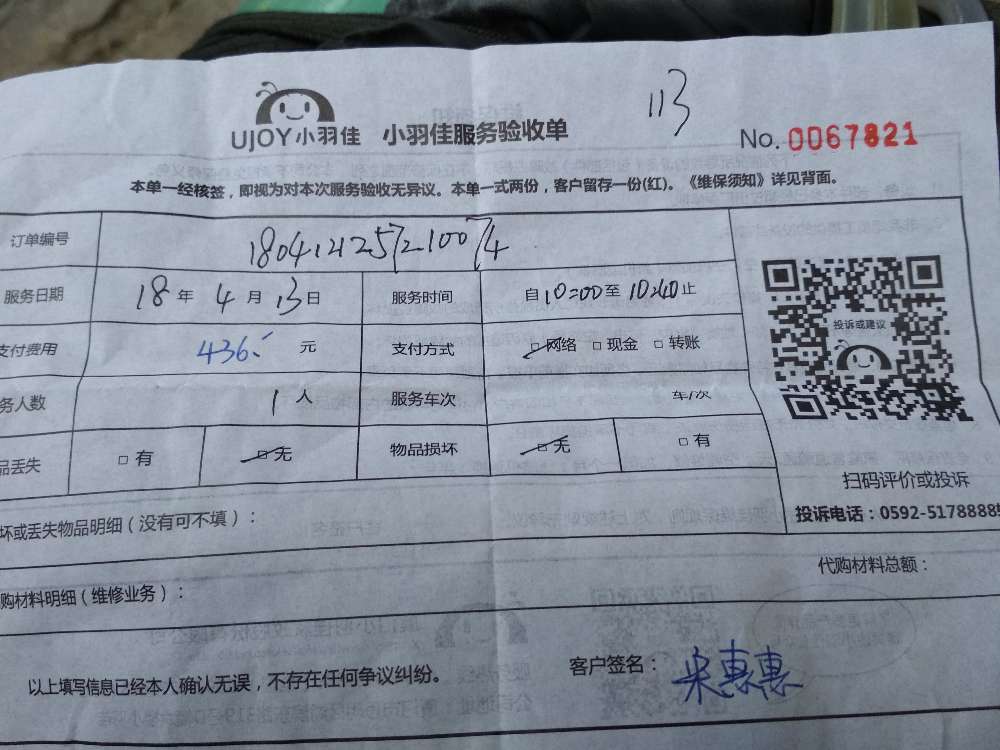 113
UJOY小羽佳 小羽佳服务验收单
No. 0067821
本单一经核签，即视为对本次服务验收无异议。本单一式两份，客户留存一份(红)。《维保须知》详见背面。
订单编号
服务日期 18年4月13日 服务时间 自10:00至10:40止
支付费用 436. 元 支付方式 □网络 □现金 □转账
务人数 1人 服务车次 车/次
品丢失 □有 □无 物品损坏 □无 □有
投诉或建议
扫码评价或投诉
投诉电话：0592-5178888
坏或丢失物品明细（没有可不填）：
代购材料总额：
购材料明细（维修业务）：
以上填写信息已经本人确认无误，不存在任何争议纠纷。
客户签名：惠惠